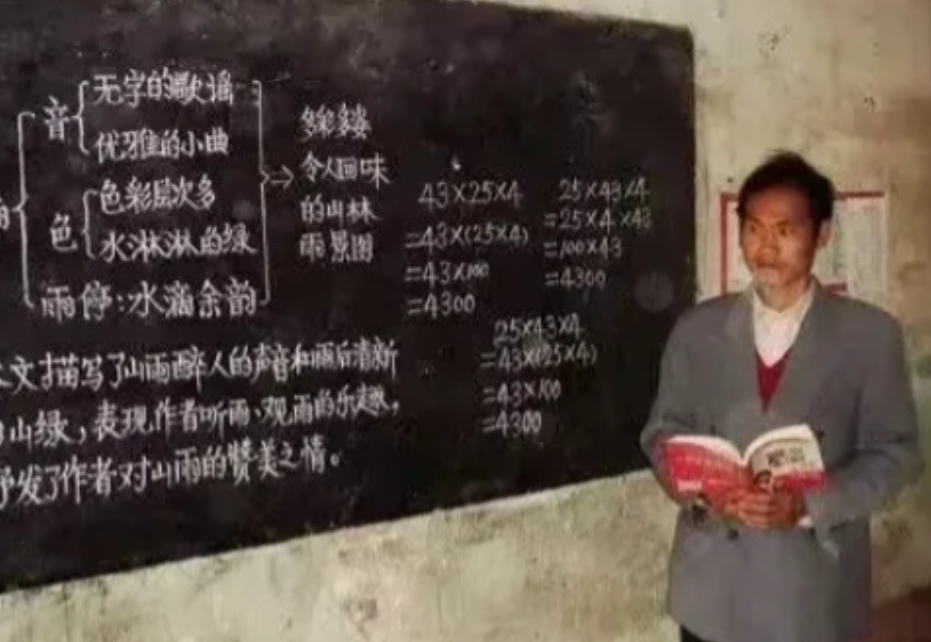 音
无字的歌谣
优雅的小曲
色
色彩层次多
水淋淋的绿
雨停:水滴余韵
令人回味
的山林
雨景图
文描写了山雨醉人的声音和雨后清新
山绿,表现作者听雨、观雨的乐趣,
发了作者对山雨的赞美之情。
43×25×4
=43×(25×4)
=43×100
=4300
25×43×4
=25×4×43
=100×43
=4300
25×43×4
=43×(25×4)
=43×100
=4300